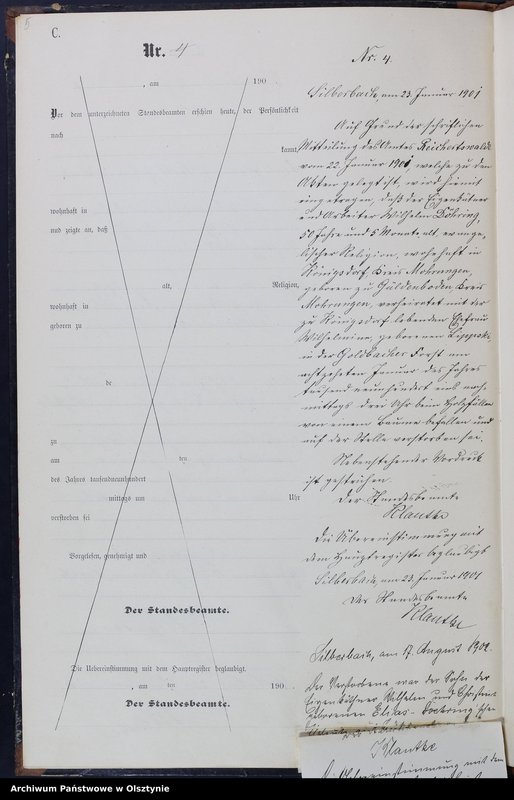 C.
Nr. 4
, am 190
Vor dem unterzeichneten Standesbeamten erschien heute, der Persönlichkeit
nach
kannt,
wohnhaft in
und zeigte an, daß
alt, Religion,
wohnhaft in
geboren zu
de
zu
am den
des Jahres tausendneunhundert
mittags um Uhr
verstorben sei
Vorgelesen, genehmigt und
Der Standesbeamte.
Die Uebereinstimmung mit dem Hauptregister beglaubigt.
, am ten 190 .
Der Standesbeamte.
Nr. 4.
Silberbach, am 23. Januar 1901
Auf Grund der schriftlichen
Mitteilung des Amtes Reichertswalde
vom 22. Januar 1901, welche zu den
Akten gelegt ist, wird hiermit
eingetragen, daß der Eigenkätner
und Arbeiter Wilhelm Döhring,
50 Jahre und 5 Monate alt, evange-
lischer Religion, wohnhaft in
Königsdorf, Kreis Mohrungen,
geboren zu Güldenboden Kreis
Mohrungen, verheiratet mit der
zu Königsdorf lebenden Ehefrau
Wilhelmine, geborenen
in der Goldbacher Forst am
achtzehnten Januar des Jahres
tausend neunhundert eins nach-
mittags drei Uhr beim Holzfällen
von einem Baume befallen und
auf der Stelle verstorben sei.
Nebenstehender Vordruck
ist gestrichen.
Der Standesbeamte
Klautke
Die Übereinstimmung mit
dem Hauptregister beglaubigt
Silberbach, am 23. Januar 1901
Der Standesbeamte
Klautke
Silberbach, am 17. August 190
Der Verstorbene war der Sohn der
Eigenkätner Wilhelm und
geborenen Döhring'schen
Klautke
Die Übereinstimmung mit dem
Archiwum Państwowe w Olsztynie